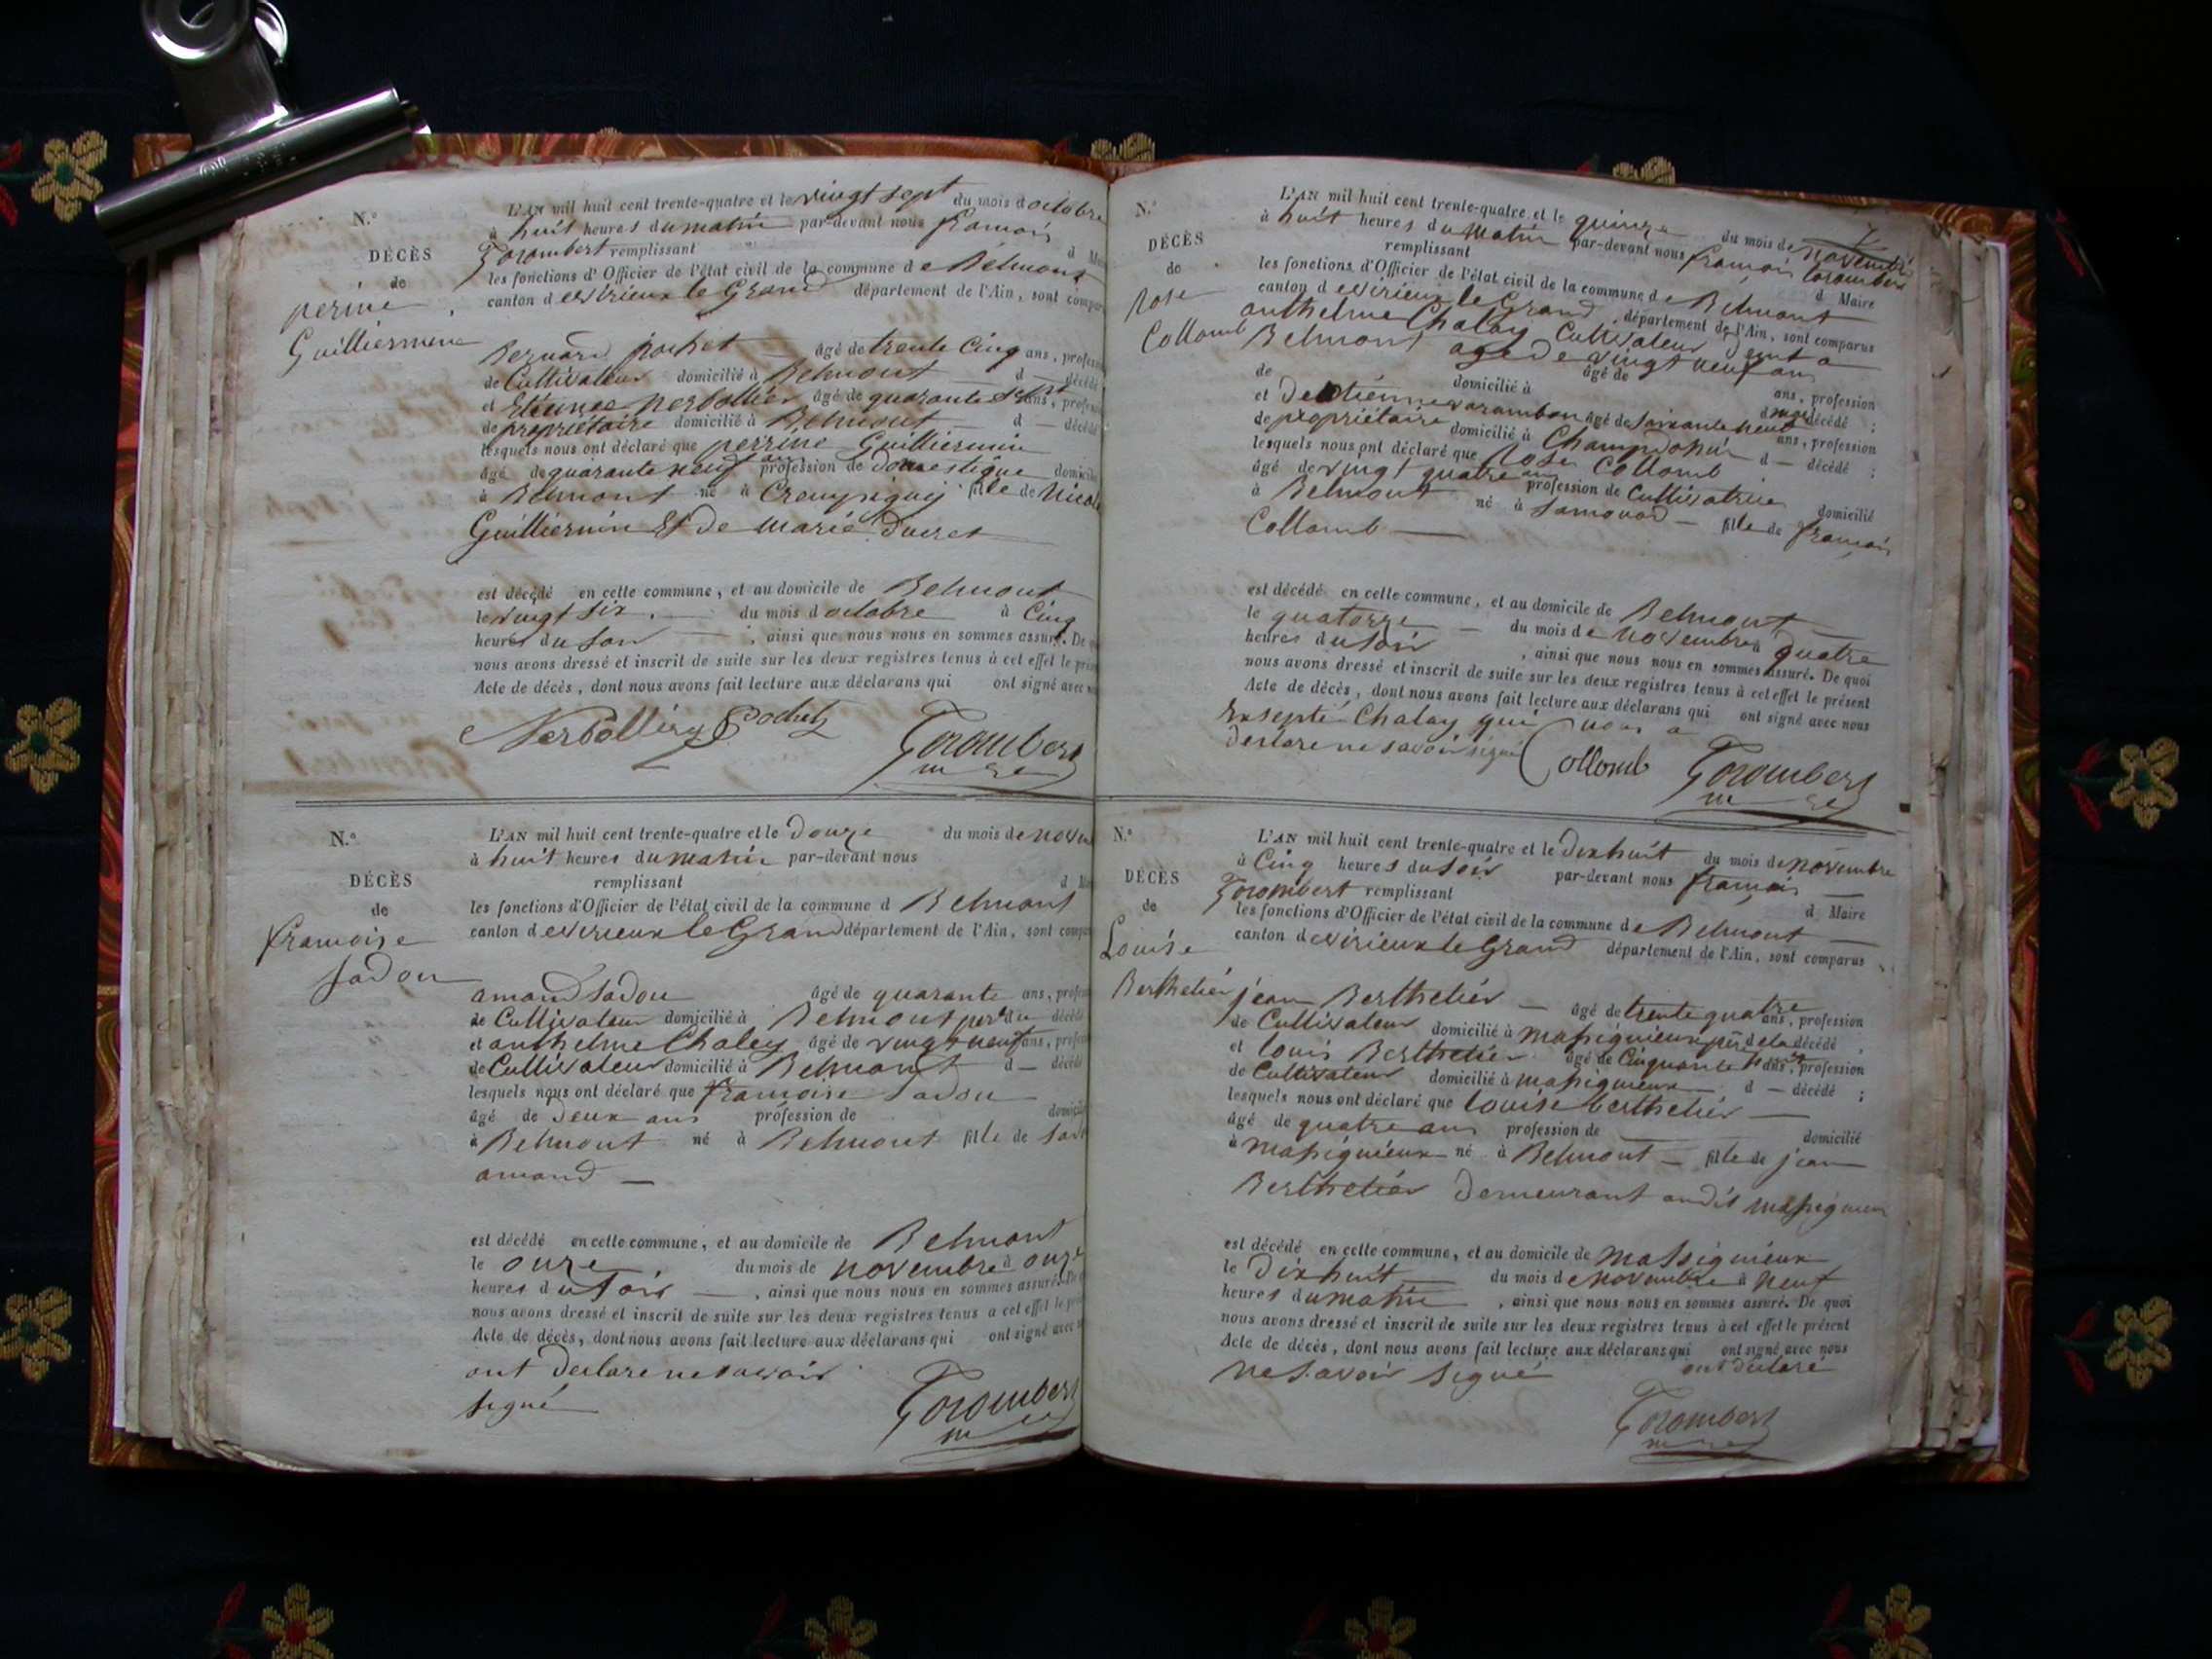 N.º
DÉCÈS
de
perine
Guilliermene
L'AN mil huit cent trente-quatre et le vingt sept du mois d octobre
à huit heures du matin par-devant nous francois
Gorombert remplissant d
les fonctions d'Officier de l'état civil de la commune d e Belmont
canton d evirieux le Grand département de l'Ain, sont
Bernard pochet âgé de trente Cinq ans,
de Cultivateur domicilié à Belmont d — décédé
et Etienne nerbollier âgé de quarante ans,
de propriétaire domicilié à Belmont — d — décédé
lesquels nous ont déclaré que perrine Guilliermin
âgé de quarante neuf ans profession de domestique
à Belmont né à fille de
Guilliermin Et de marie Ducret
est décédé en cette commune, et au domicile de Belmont
le vingt six du mois d octobre à Cinq
heures du soir , ainsi que nous nous en sommes assuré. De
nous avons dressé et inscrit de suite sur les deux registres tenus à cet effet le
Acte de décès, dont nous avons fait lecture aux déclarans qui ont signé avec
Nerbolliery Pochet Gorombert
N.º
DÉCÈS
de
francoise
sadou
L'AN mil huit cent trente-quatre et le Douze du mois de
à huit heures du matin par-devant nous
remplissant d
les fonctions d'Officier de l'état civil de la commune d Belmont
canton d evirieux le Grand département de l'Ain, sont
amand sadou âgé de quarante ans,
de Cultivateur domicilié à Belmont per du décédé
et anthelme Chaley âgé de vingt neuf ans,
de Cultivateur domicilié à Belmont d — décédé
lesquels nous ont déclaré que francoise sadou
âgé de Deux ans profession de
à Belmont né à Belmont fille de
amand —
est décédé en cette commune, et au domicile de Belmont
le onze du mois de novembre à onze
heures d u soir — , ainsi que nous nous en sommes assuré.
nous avons dressé et inscrit de suite sur les deux registres tenus à cet effet le
Acte de décès, dont nous avons fait lecture aux déclarans qui ont signé avec
ont declare ne savoir
signé
Gorombert
N.º
DÉCÈS
de
Rose
Collomb
L'AN mil huit cent trente-quatre et le quinze du mois de novembre
à huit heures du matin par-devant nous francois Gorombert
remplissant d Maire
les fonctions d'Officier de l'état civil de la commune d e Belmont
canton d evirieux le Grand département de l'Ain, sont comparus
anthelme Chalay Cultivateur
Belmont age de vingt neuf ans
de domicilié à âgé de ans, profession
et âgé de soixante neuf d décédé ;
de propriétaire domicilié à ans, profession
lesquels nous ont déclaré que Rose Collomb d — décédé ;
âgé de vingt quatre ans profession de Cultivatrice
à Belmont né à — fille de francois domicilié
Collomb —
est décédé en cette commune, et au domicile de Belmont
le quatorze — du mois d e novembre à quatre
heures du soir , ainsi que nous nous en sommes assuré. De quoi
nous avons dressé et inscrit de suite sur les deux registres tenus à cet effet le présent
Acte de décès, dont nous avons fait lecture aux déclarans qui ont signé avec nous
Exsepté Chalay qui nous a
declare ne savoir signé Collomb Gorombert
N.º
DÉCÈS
de
Louise
Berthelier
L'AN mil huit cent trente-quatre et le Dixhuit du mois de novembre
à Cinq heures du soir par-devant nous francois
Gorombert remplissant d Maire
les fonctions d'Officier de l'état civil de la commune d e Belmont —
canton d evirieux le Grand département de l'Ain, sont comparus
jean Berthelier — âgé de trente quatre ans, profession
de Cultivateur domicilié à massignieux d ela décédé
et louis Berthelier âgé de Cinquante ans, profession
de Cultivateur domicilié à massignieux d — décédé ;
lesquels nous ont déclaré que louise berthelier —
âgé de quatre ans profession de — domicilié
à massignieux né à Belmont — fille de jean
Berthelier demeurant audit massignieu
est décédé en cette commune, et au domicile de massignieux
le Dixhuit du mois d e novembre à neuf
heures du matin , ainsi que nous nous en sommes assuré. De quoi
nous avons dressé et inscrit de suite sur les deux registres tenus à cet effet le présent
Acte de décès, dont nous avons fait lecture aux déclarans qui ont signé avec nous
ont déclaré
ne savoir signé
Gorombert